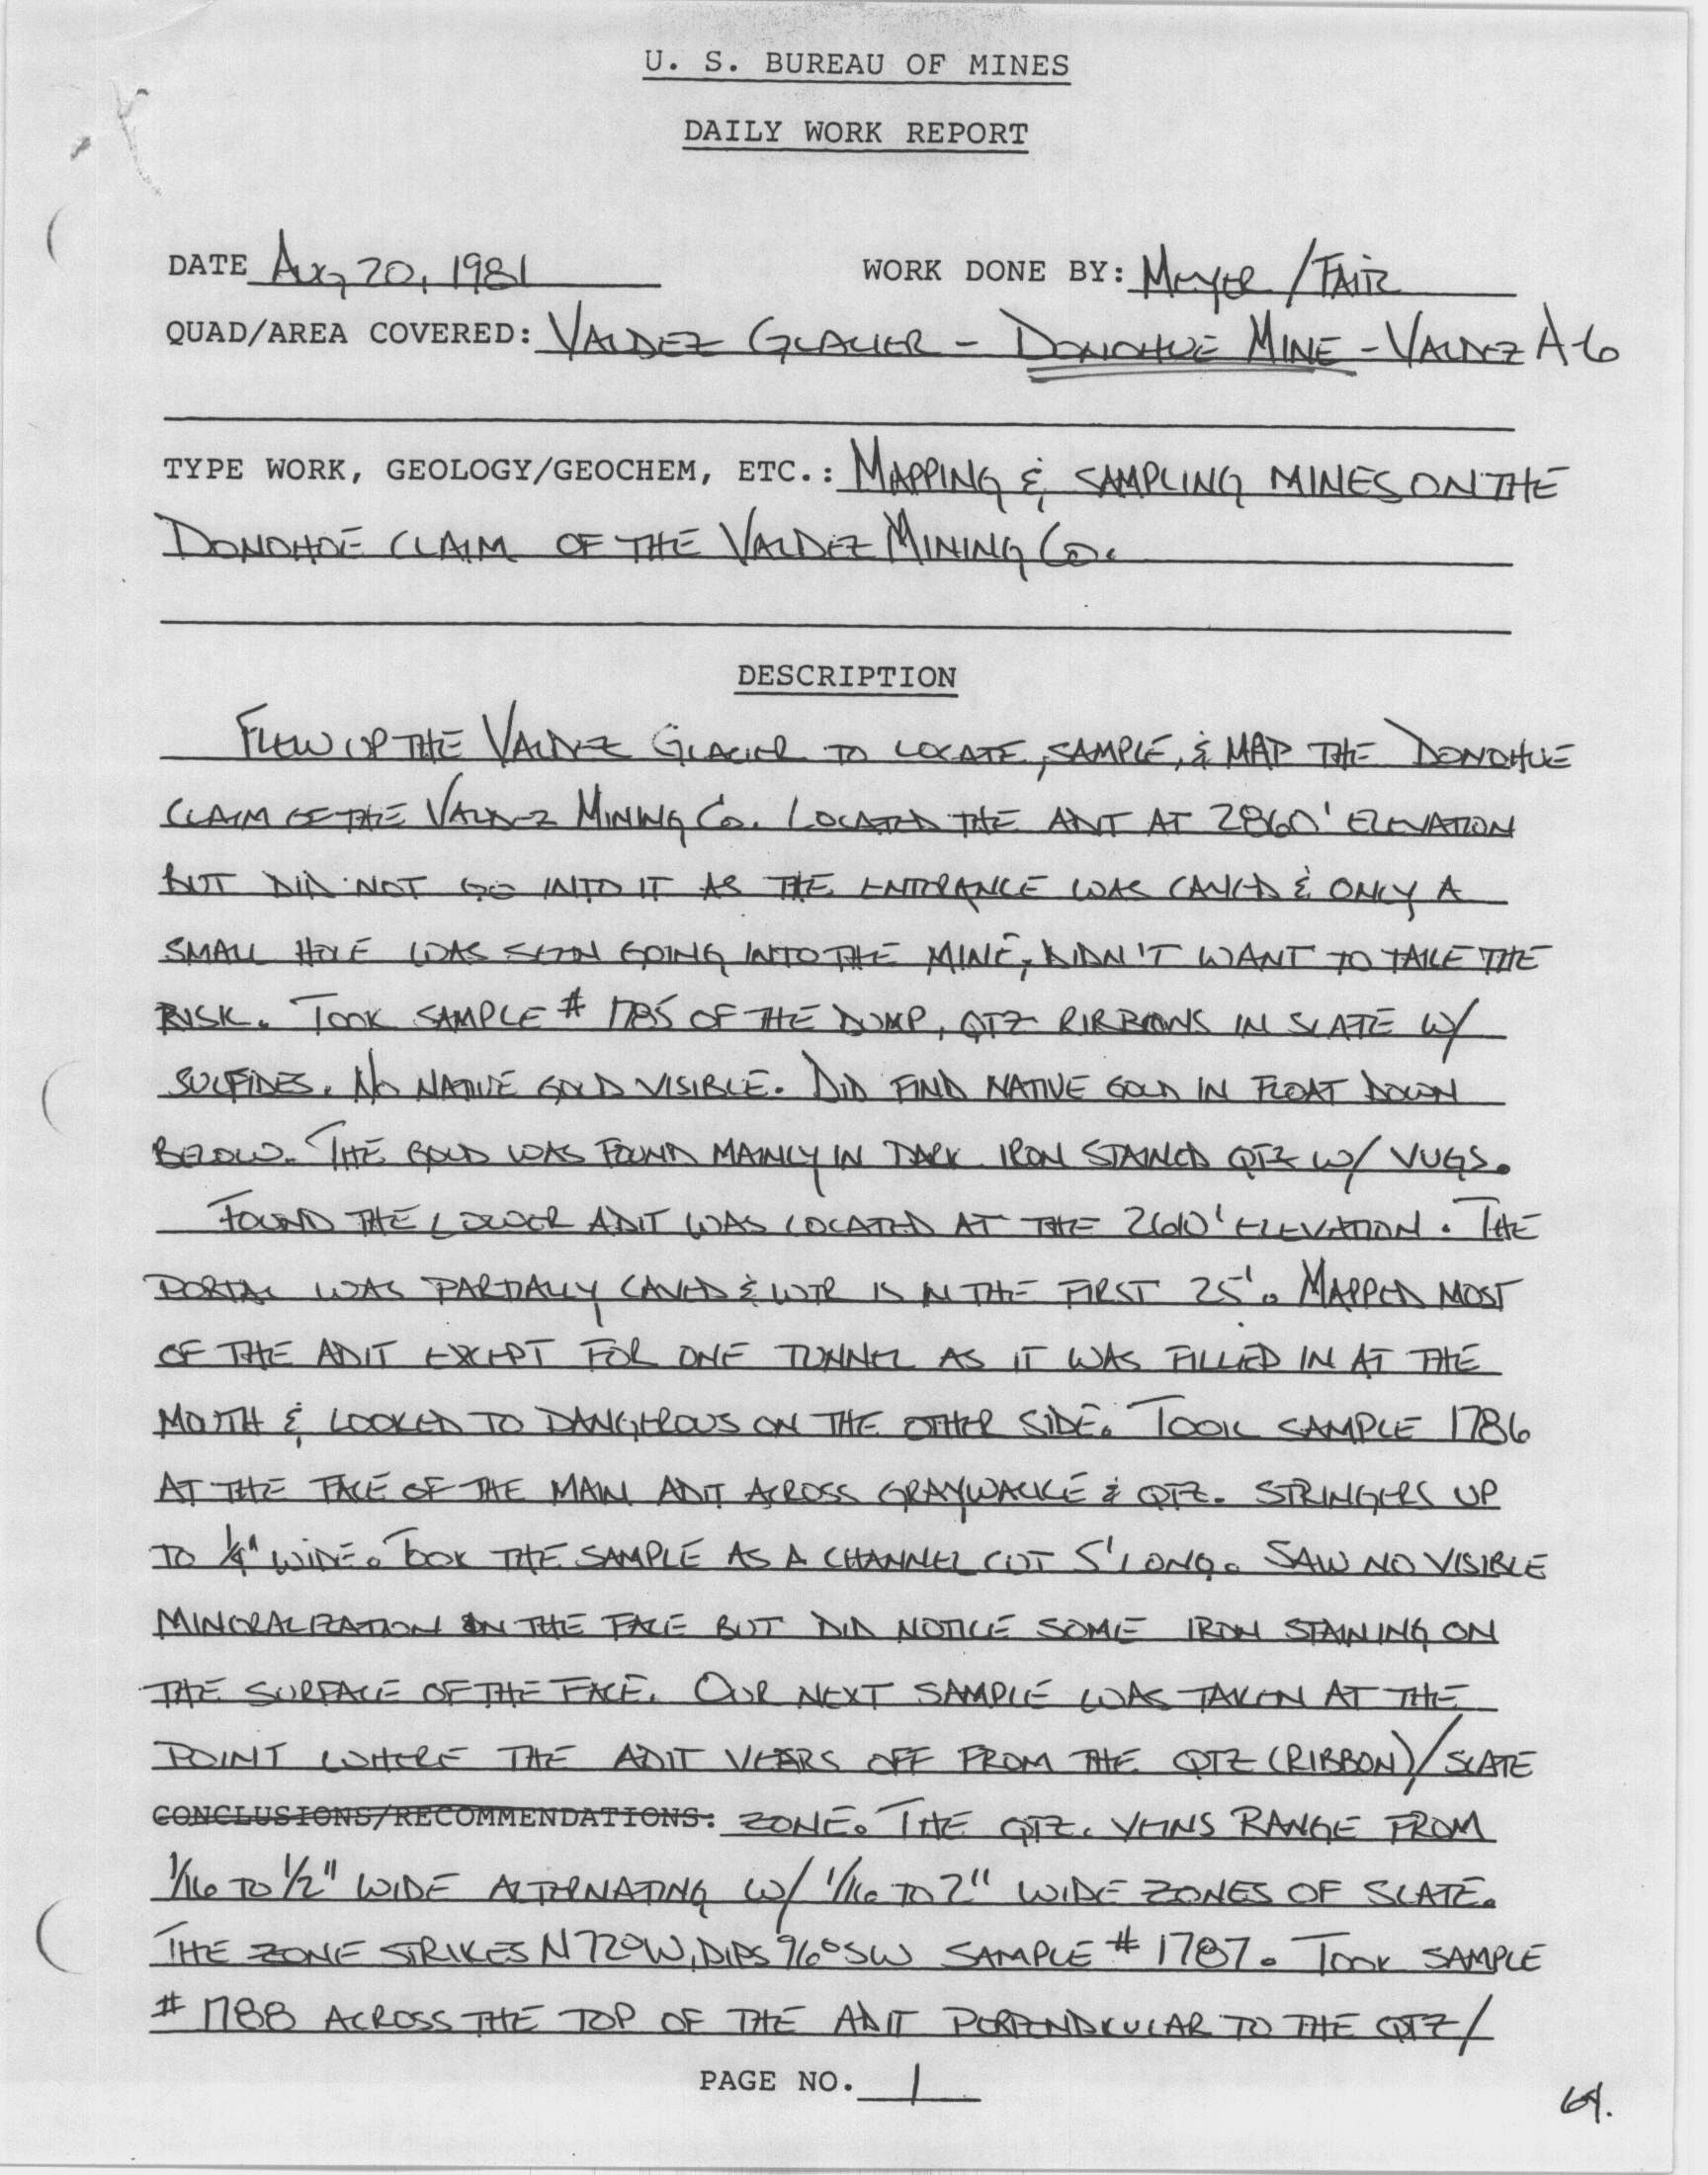 U. S. BUREAU OF MINES
DAILY WORK REPORT
DATE Aug 20, 1981 WORK DONE BY: Meyer / FAIR
QUAD/AREA COVERED: VALDEZ GLACIER - DONOHUE MINE - VALDEZ A-6
TYPE WORK, GEOLOGY/GEOCHEM, ETC.: MAPPING & SAMPLING MINES ON THE
DONOHOE CLAIM OF THE VALDEZ MINING Co.
DESCRIPTION
FLEW UP THE VALDEZ GLACIER TO LOCATE, SAMPLE, & MAP THE DONOHUE
CLAIM OF THE VALDEZ MINING Co. LOCATED THE ADIT AT 2860' ELEVATION
BUT DID NOT GO INTO IT AS THE ENTRANCE WAS CAVED & ONLY A
SMALL HOLE WAS SEEN GOING INTO THE MINE, DIDN'T WANT TO TAKE THE
RISK. TOOK SAMPLE # 1785 OF THE DUMP, QTZ RIBBONS IN SLATE W/
SULFIDES. NO NATIVE GOLD VISIBLE. DID FIND NATIVE GOLD IN FLOAT DOWN
BELOW. THE GOLD WAS FOUND MAINLY IN DARK IRON STAINED QTZ W/ VUGS.
FOUND THE LOWER ADIT WAS LOCATED AT THE 2610' ELEVATION. THE
PORTAL WAS PARTIALLY CAVED & WTR IS IN THE FIRST 25'. MAPPED MOST
OF THE ADIT EXCEPT FOR ONE TUNNEL AS IT WAS FILLED IN AT THE
MOUTH & LOOKED TO DANGEROUS ON THE OTHER SIDE. TOOK SAMPLE 1786
AT THE FACE OF THE MAIN ADIT ACROSS GRAYWACKE & QTZ. STRINGERS UP
TO 1/4" WIDE. TOOK THE SAMPLE AS A CHANNEL CUT 5' LONG. SAW NO VISIBLE
MINERALIZATION IN THE FACE BUT DID NOTICE SOME IRON STAINING ON
THE SURFACE OF THE FACE. OUR NEXT SAMPLE WAS TAKEN AT THE
POINT WHERE THE ADIT VEARS OFF FROM THE QTZ (RIBBON)/SLATE
CONCLUSIONS/RECOMMENDATIONS: ZONE. THE QTZ. VEINS RANGE FROM
1/16 TO 1/2" WIDE ALTERNATING W/ 1/16 TO 2" WIDE ZONES OF SLATE.
THE ZONE STRIKES N72°W, DIPS 76°SW SAMPLE # 1787. TOOK SAMPLE
# 1788 ACROSS THE TOP OF THE ADIT PERPENDICULAR TO THE QTZ/
PAGE NO. 1
64.